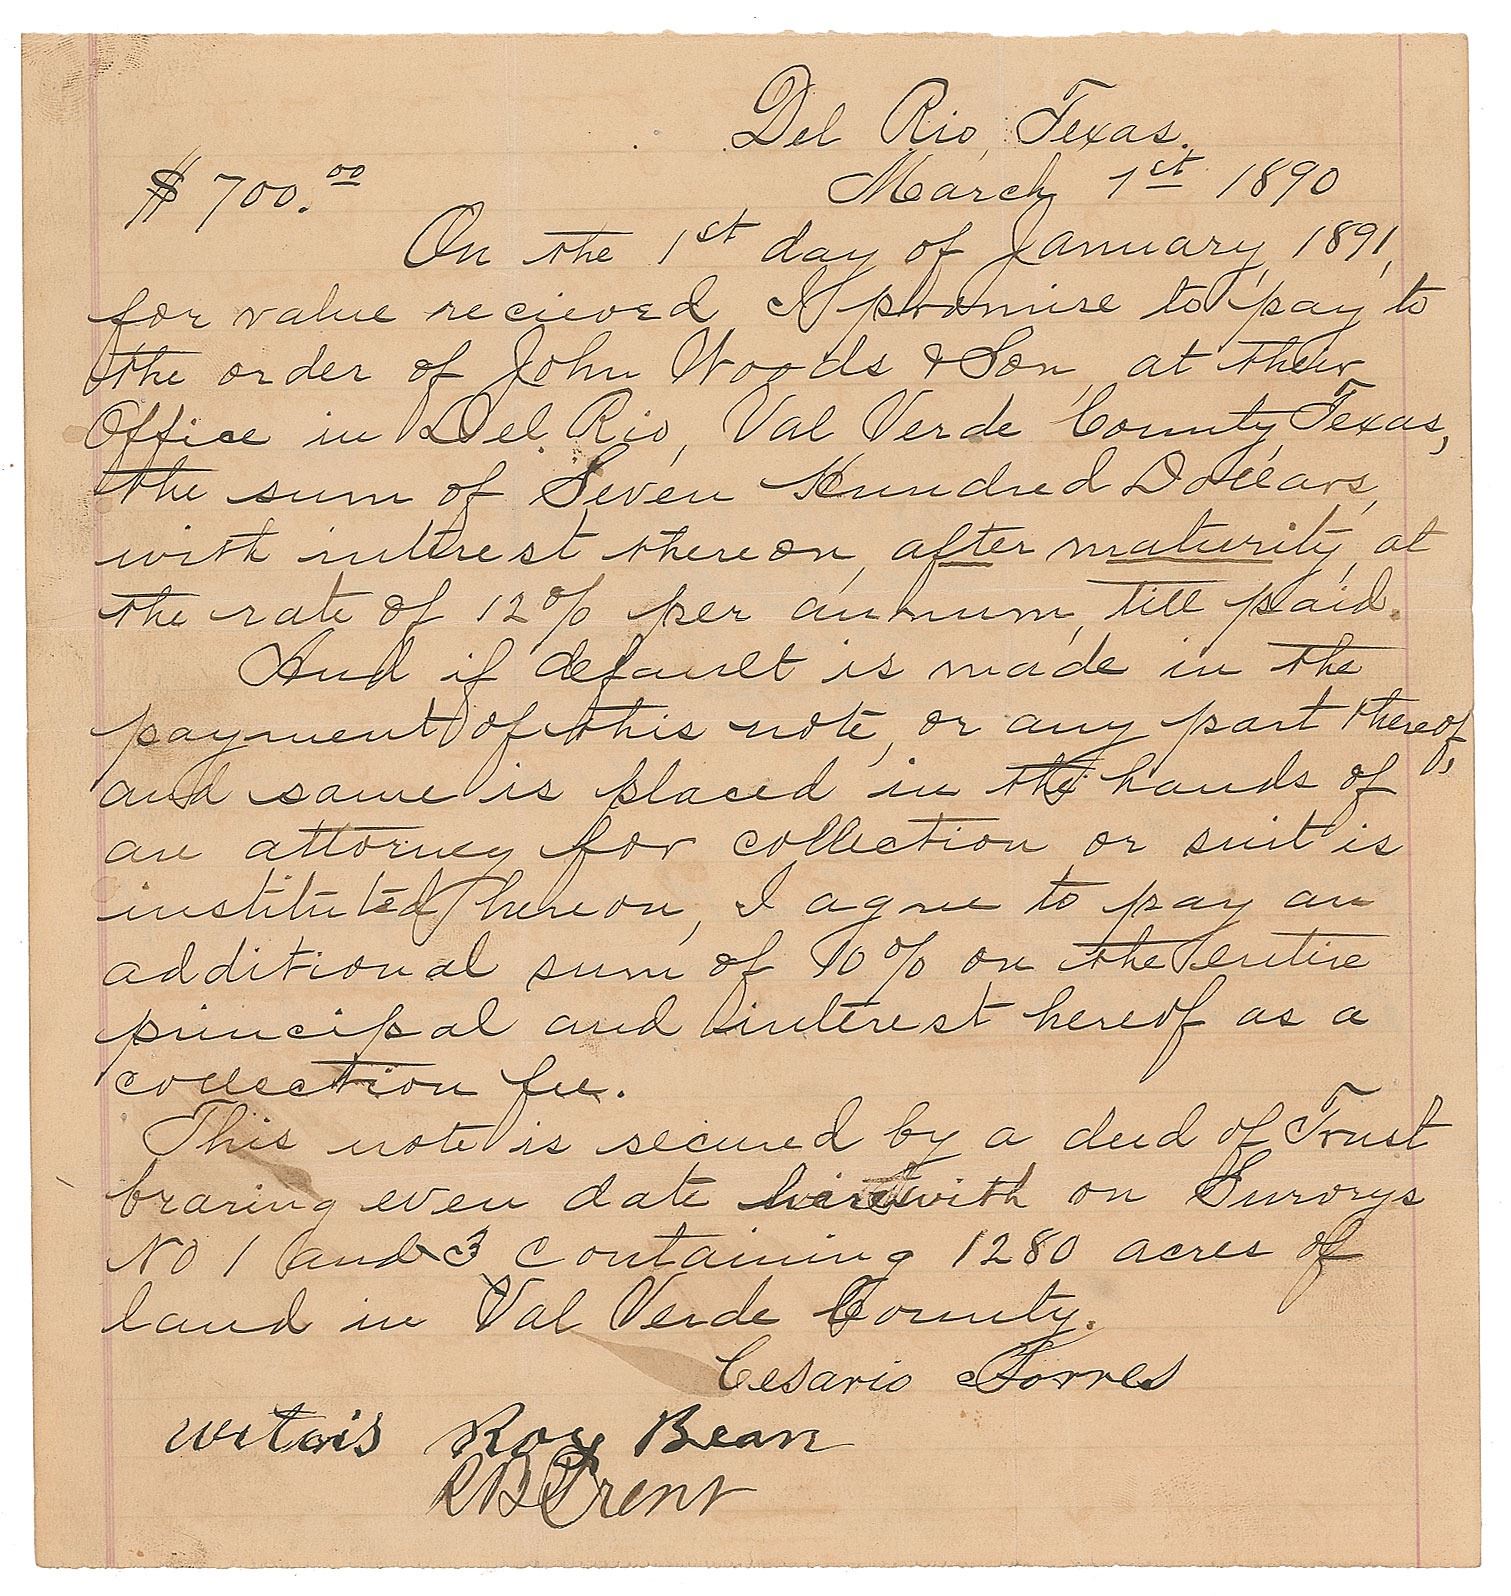 Del Rio, Texas.
$700.00 March 1st 1890
On the 1st day of January, 1891,
for value recieved I promise to pay to
the order of John Woods & Son, at their
Office in Del Rio, Val Verde County, Texas,
the sum of Seven Hundred Dollars,
with interest thereon, after maturity, at
the rate of 12% per annum, till paid.
And if default is made in the
payment of this note, or any part thereof,
and same is placed in the hands of
an attorney for collection or suit is
instituted hereon, I agree to pay an
additional sum of 10% on the entire
principal and interest hereof as a
collection fee.
This note is secured by a deed of Trust
bearing even date herewith on Surveys
No 1 and 3 containing 1280 acres of
land in Val Verde County.
Cesario Torres
Witnis Roy Bean